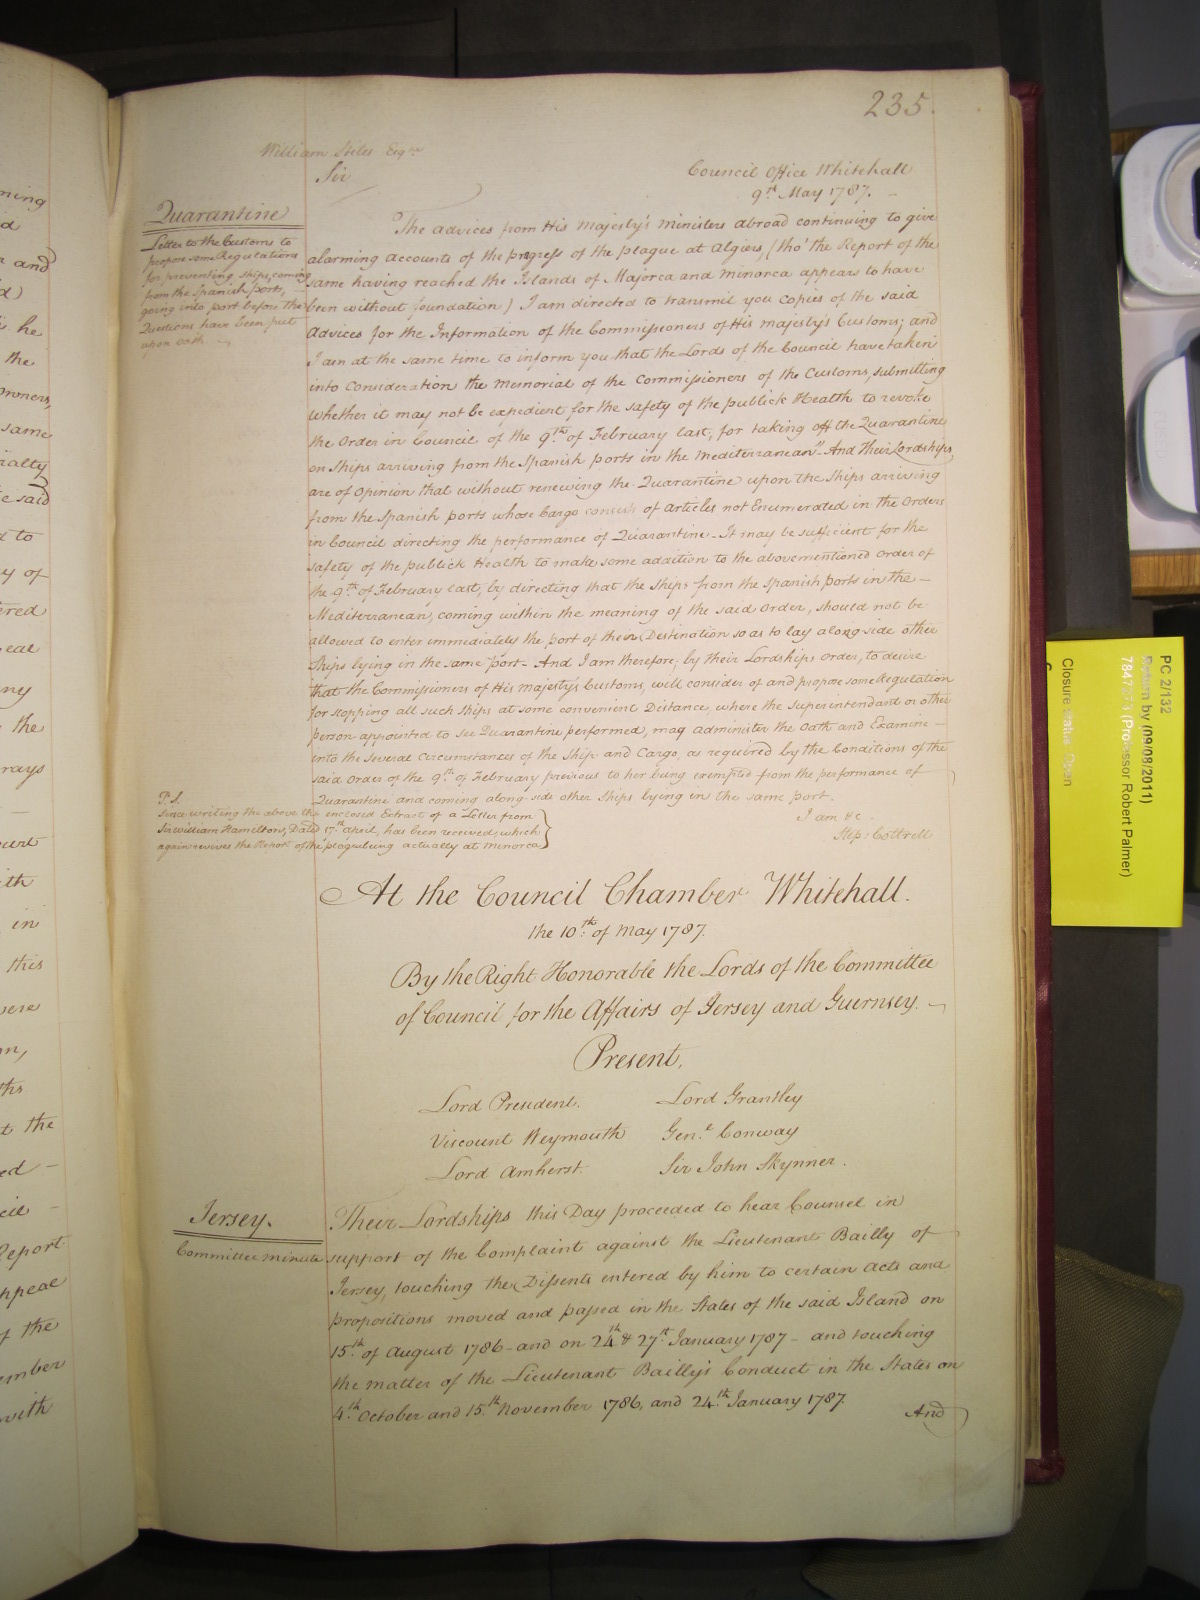 235.
William Stiles Esqre
Sir
Council Office Whitehall
9th May 1787.
Quarantine
Letter to the Customs to
propose some Regulations
for preventing ships, coming
from the Spanish ports,
going into port before the
Questions have been put
upon oath.
The advices from His Majesty's Ministers abroad continuing to give
alarming accounts of the progress of the plague at Algiers, (tho' the Report of the
same having reached the Islands of Majorca and Minorca appears to have
been without foundation) I am directed to transmit you Copies of the said
Advices for the Information of the Commissioners of His Majesty's Customs; and
I am at the same time to inform you that the Lords of the Council have taken
into Consideration the Memorial of the Commissioners of the Customs, submitting
whether it may not be expedient for the safety of the publick Health to revoke
the Order in Council of the 9th of February last, for taking off the Quarantine
on Ships arriving from the Spanish ports in the Mediterranean" And Their Lordships
are of Opinion that without renewing the Quarantine upon the Ships arriving
from the Spanish ports whose Cargo consists of Articles not Enumerated in the Orders
in Council directing the performance of Quarantine - It may be sufficient for the
safety of the publick Health to make some addition to the abovementioned Order of
the 9th of February last, by directing that the Ships from the Spanish ports in the -
Mediterranean, coming within the meaning of the said Order, should not be
allowed to enter immediately the port of their Destination so as to lay along-side other
Ships lying in the same port - And I am therefore, by their Lordships Order, to desire
that the Commissioners of His Majesty's Customs, will consider of and propose some Regulation
for stopping all such Ships at some convenient Distance, where the Superintendant or other
person appointed to see Quarantine performed, may administer the Oath and Examine -
into the several Circumstances of the Ship and Cargo, as required by the Conditions of the
said Order of the 9th of February previous to her being exempted from the performance of
Quarantine and coming along-side other Ships lying in the same port.
I am &c.
Step: Cottrell
P.S.
Since writing the above the enclosed Extract of a Letter from
Sir William Hamilton, Dated 17th April, has been received, which
again revives the Report of the plague being actually at Minorca
At the Council Chamber Whitehall.
the 10th of May 1787.
By the Right Honorable the Lords of the Committee
of Council for the Affairs of Jersey and Guernsey.
Present,
Lord President. Lord Grantley
Viscount Weymouth Genl Conway
Lord Amherst Sir John Skynner.
Jersey.
Committee minute
Their Lordships this Day proceeded to hear Counsel in
support of the Complaint against the Lieutenant Bailly of
Jersey, touching the Dissents entered by him to certain Acts and
propositions moved and passed in the States of the said Island on
15th of August 1786 - and on 24th & 27th January 1787 - and touching
the matter of the Lieutenant Bailly's Conduct in the States on
4th October and 15th November 1786, and 24th January 1787.
And
PC 2/132
Return by (09/08/2011)
(Professor Robert Palmer)
Closure status: Open